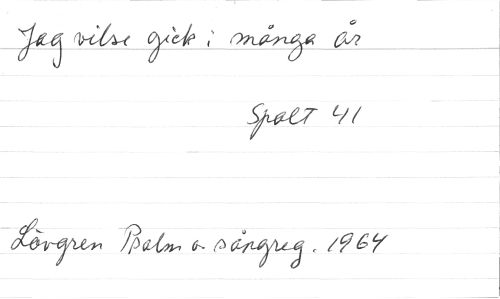 Jag vilse gick i många år
Spalt 41
Lövgren Psalm o sångreg. 1964